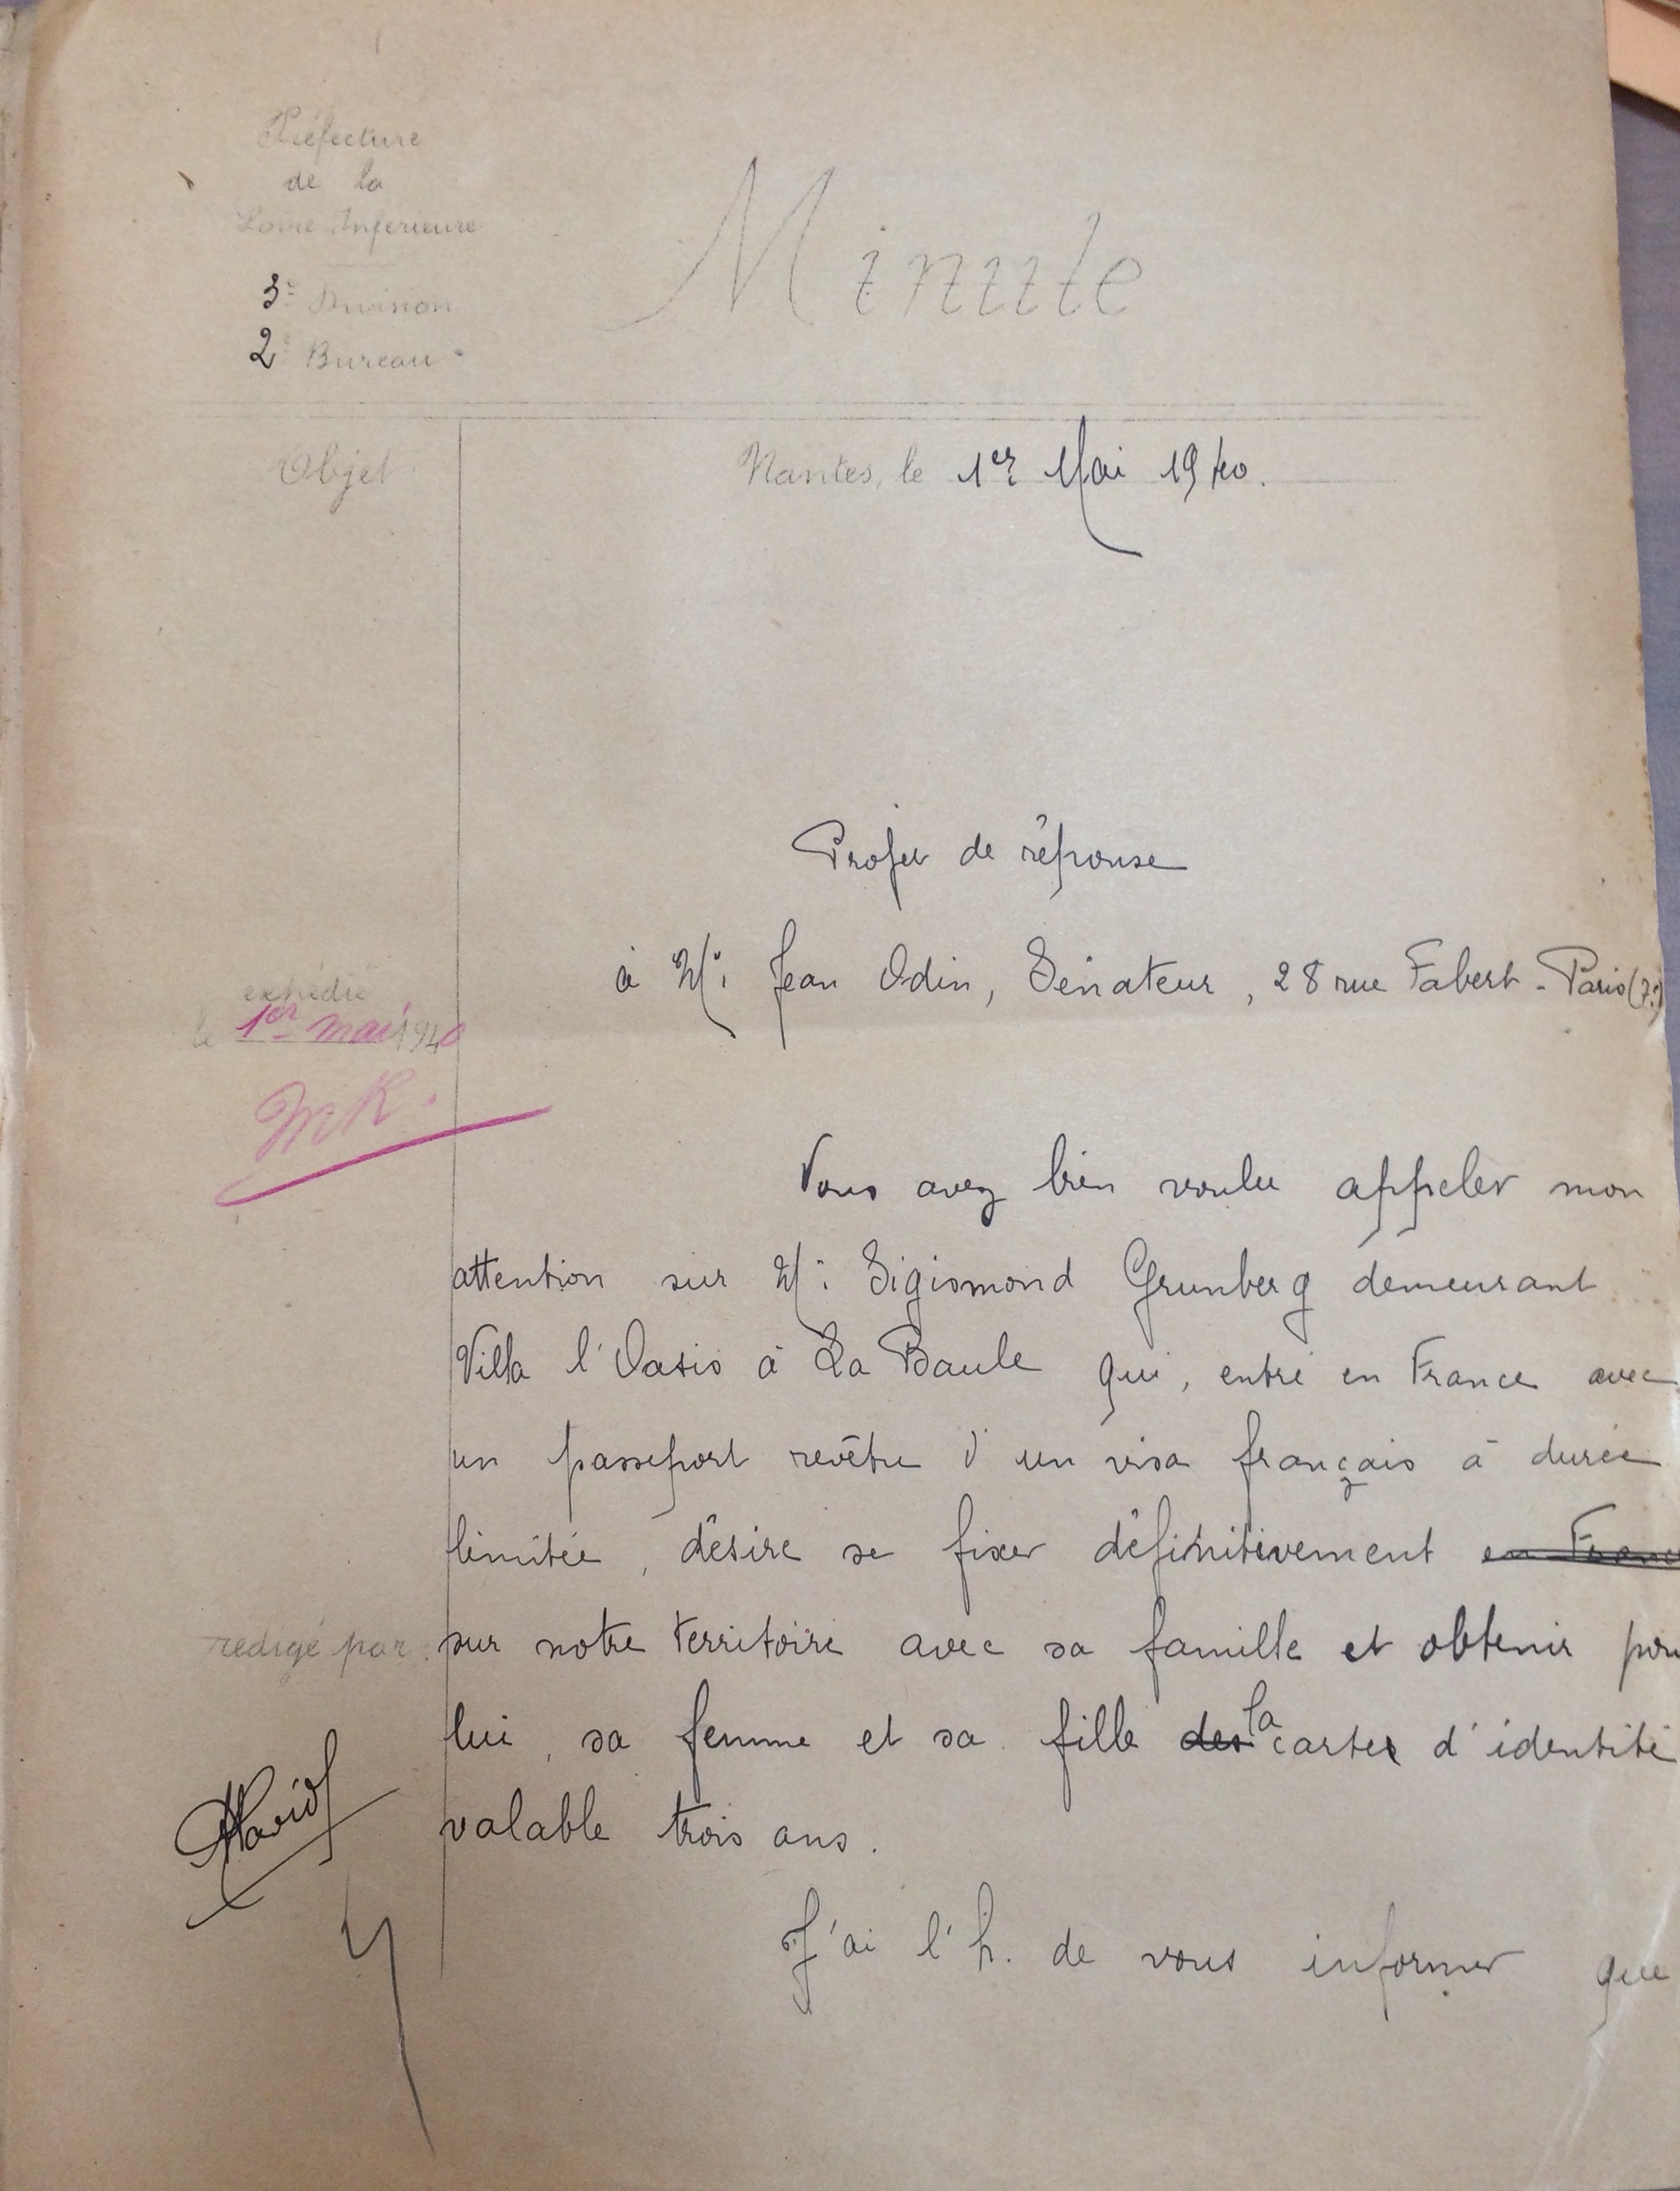 Préfecture
de la
Loire-Inférieure
3e Division
2e Bureau
Minute
Objet
Nantes, le 1er Mai 1940.
Projet de réponse
à M. Jean Odin, Sénateur, 28 rue Fabert - Paris (7e)
expédié
le 1er mai 1940
MR.
Vous avez bien voulu appeler mon
attention sur M. Sigismond Grunberg demeurant
Villa l'Oasis à La Baule qui, entré en France avec
un passeport revêtu d'un visa français à durée
limitée, désire se fixer définitivement en France
sur notre territoire avec sa famille et obtenir pour
rédigé par
lui, sa femme et sa fille des la carte d'identité
valable trois ans.
J'ai l'h. de vous informer que